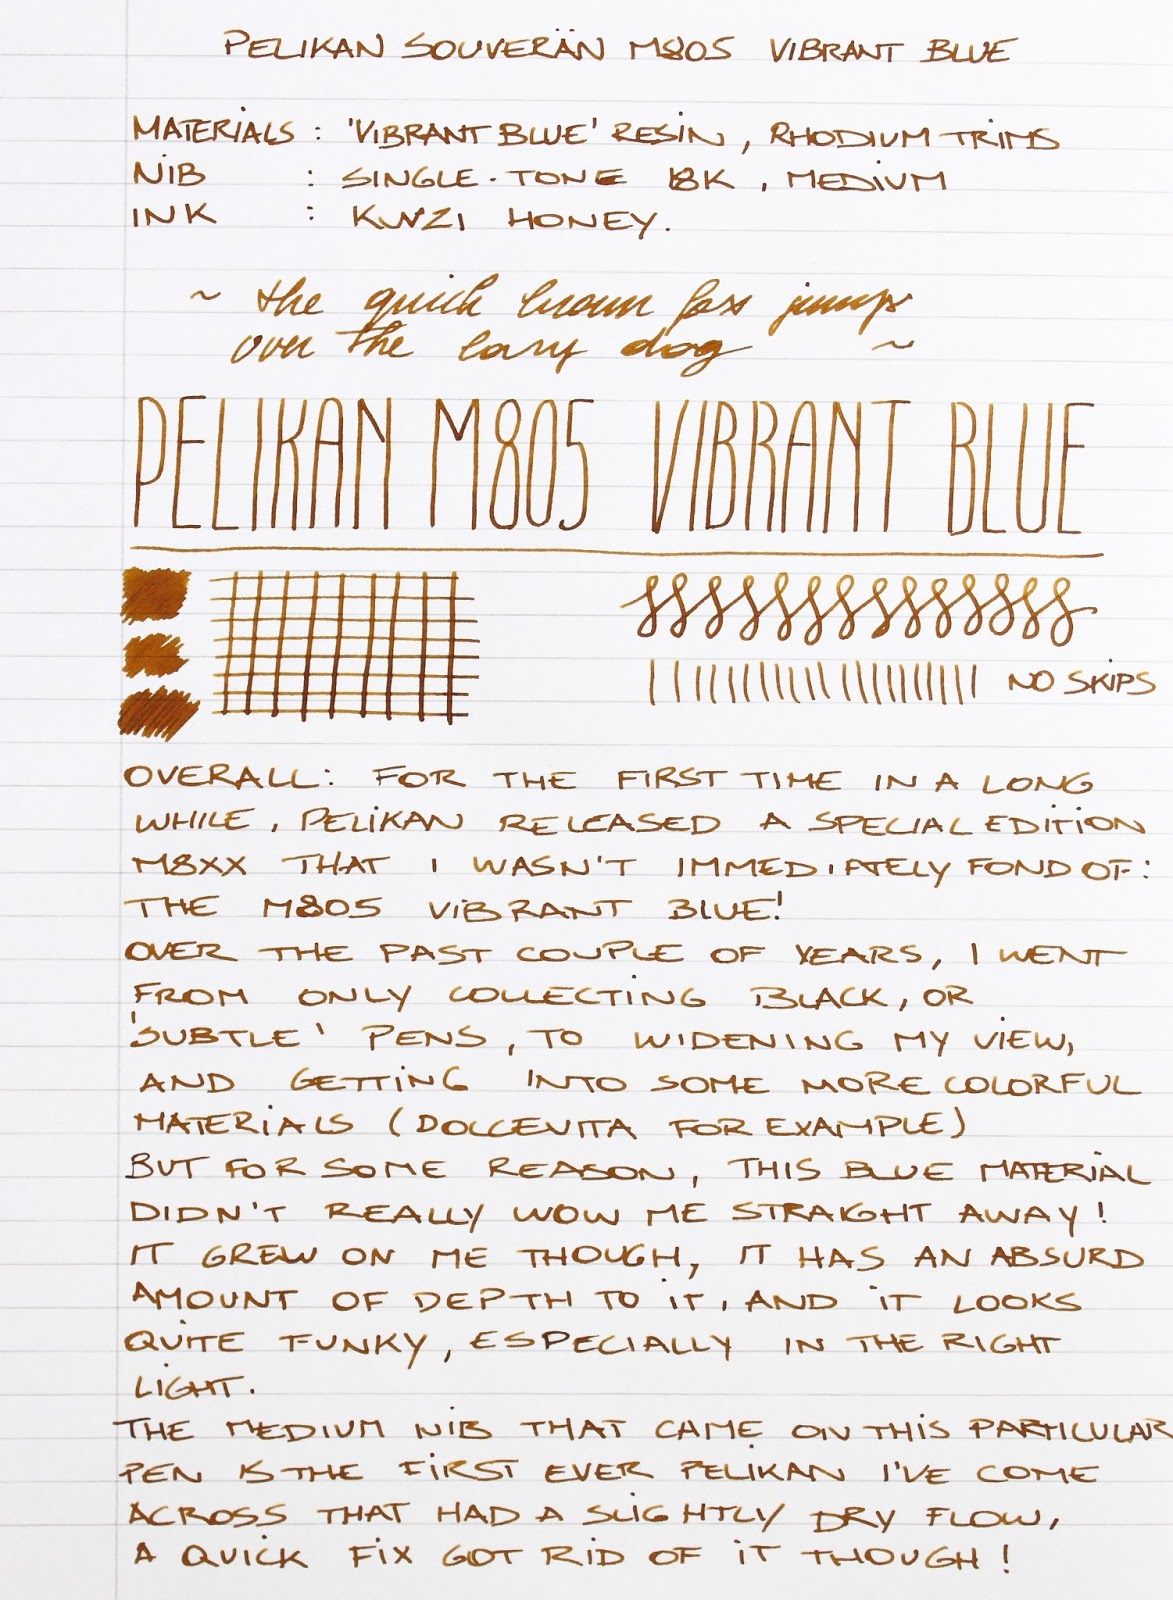 PELIKAN SOUVERÄN M805 VIBRANT BLUE
MATERIALS : 'VIBRANT BLUE' RESIN, RHODIUM TRIMS
NIB : SINGLE-TONE 18K, MEDIUM
INK : KWZI HONEY.
~ the quick brown fox jumps
over the lazy dog ~
PELIKAN M805 VIBRANT BLUE
NO SKIPS
OVERALL: FOR THE FIRST TIME IN A LONG
WHILE, PELIKAN RELEASED A SPECIAL EDITION
M8XX THAT I WASN'T IMMEDIATELY FOND OF:
THE M805 VIBRANT BLUE!
OVER THE PAST COUPLE OF YEARS, I WENT
FROM ONLY COLLECTING BLACK, OR
'SUBTLE' PENS, TO WIDENING MY VIEW,
AND GETTING INTO SOME MORE COLORFUL
MATERIALS (DOLCEVITA FOR EXAMPLE)
BUT FOR SOME REASON, THIS BLUE MATERIAL
DIDN'T REALLY WOW ME STRAIGHT AWAY!
IT GREW ON ME THOUGH, IT HAS AN ABSURD
AMOUNT OF DEPTH TO IT, AND IT LOOKS
QUITE FUNKY, ESPECIALLY IN THE RIGHT
LIGHT.
THE MEDIUM NIB THAT CAME ON THIS PARTICULAR
PEN IS THE FIRST EVER PELIKAN I'VE COME
ACROSS THAT HAD A SLIGHTLY DRY FLOW,
A QUICK FIX GOT RID OF IT THOUGH!